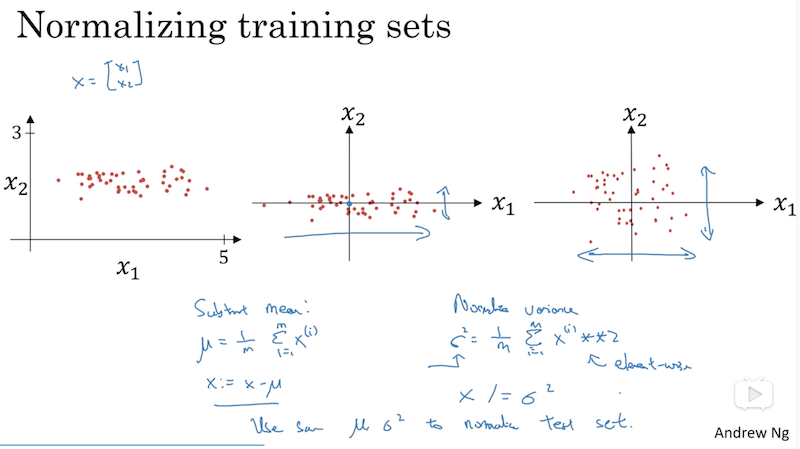 Normalizing training sets
x = [x₁ x₂]
3
x₂
x₁
5
x₂
x₁
x₂
x₁
Subtract mean:
μ = 1/m Σ_{i=1}^{m} x^(i)
x := x - μ
Normalize variance
σ² = 1/m Σ_{i=1}^{m} x^(i) ** 2
element-wise
x /= σ²
Use same μ σ² to normalize test set.
Andrew Ng